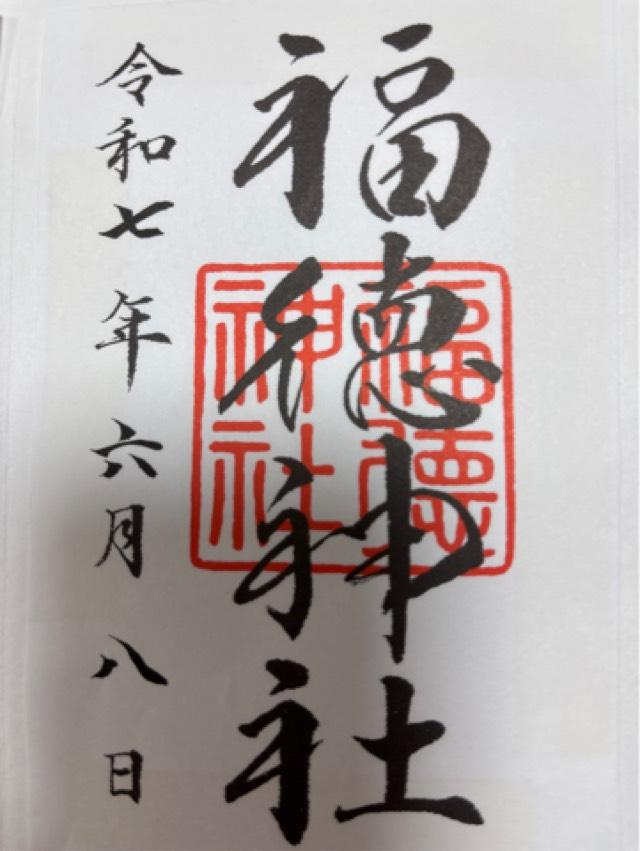 福徳神社
福德
神社
令和七年六月八日